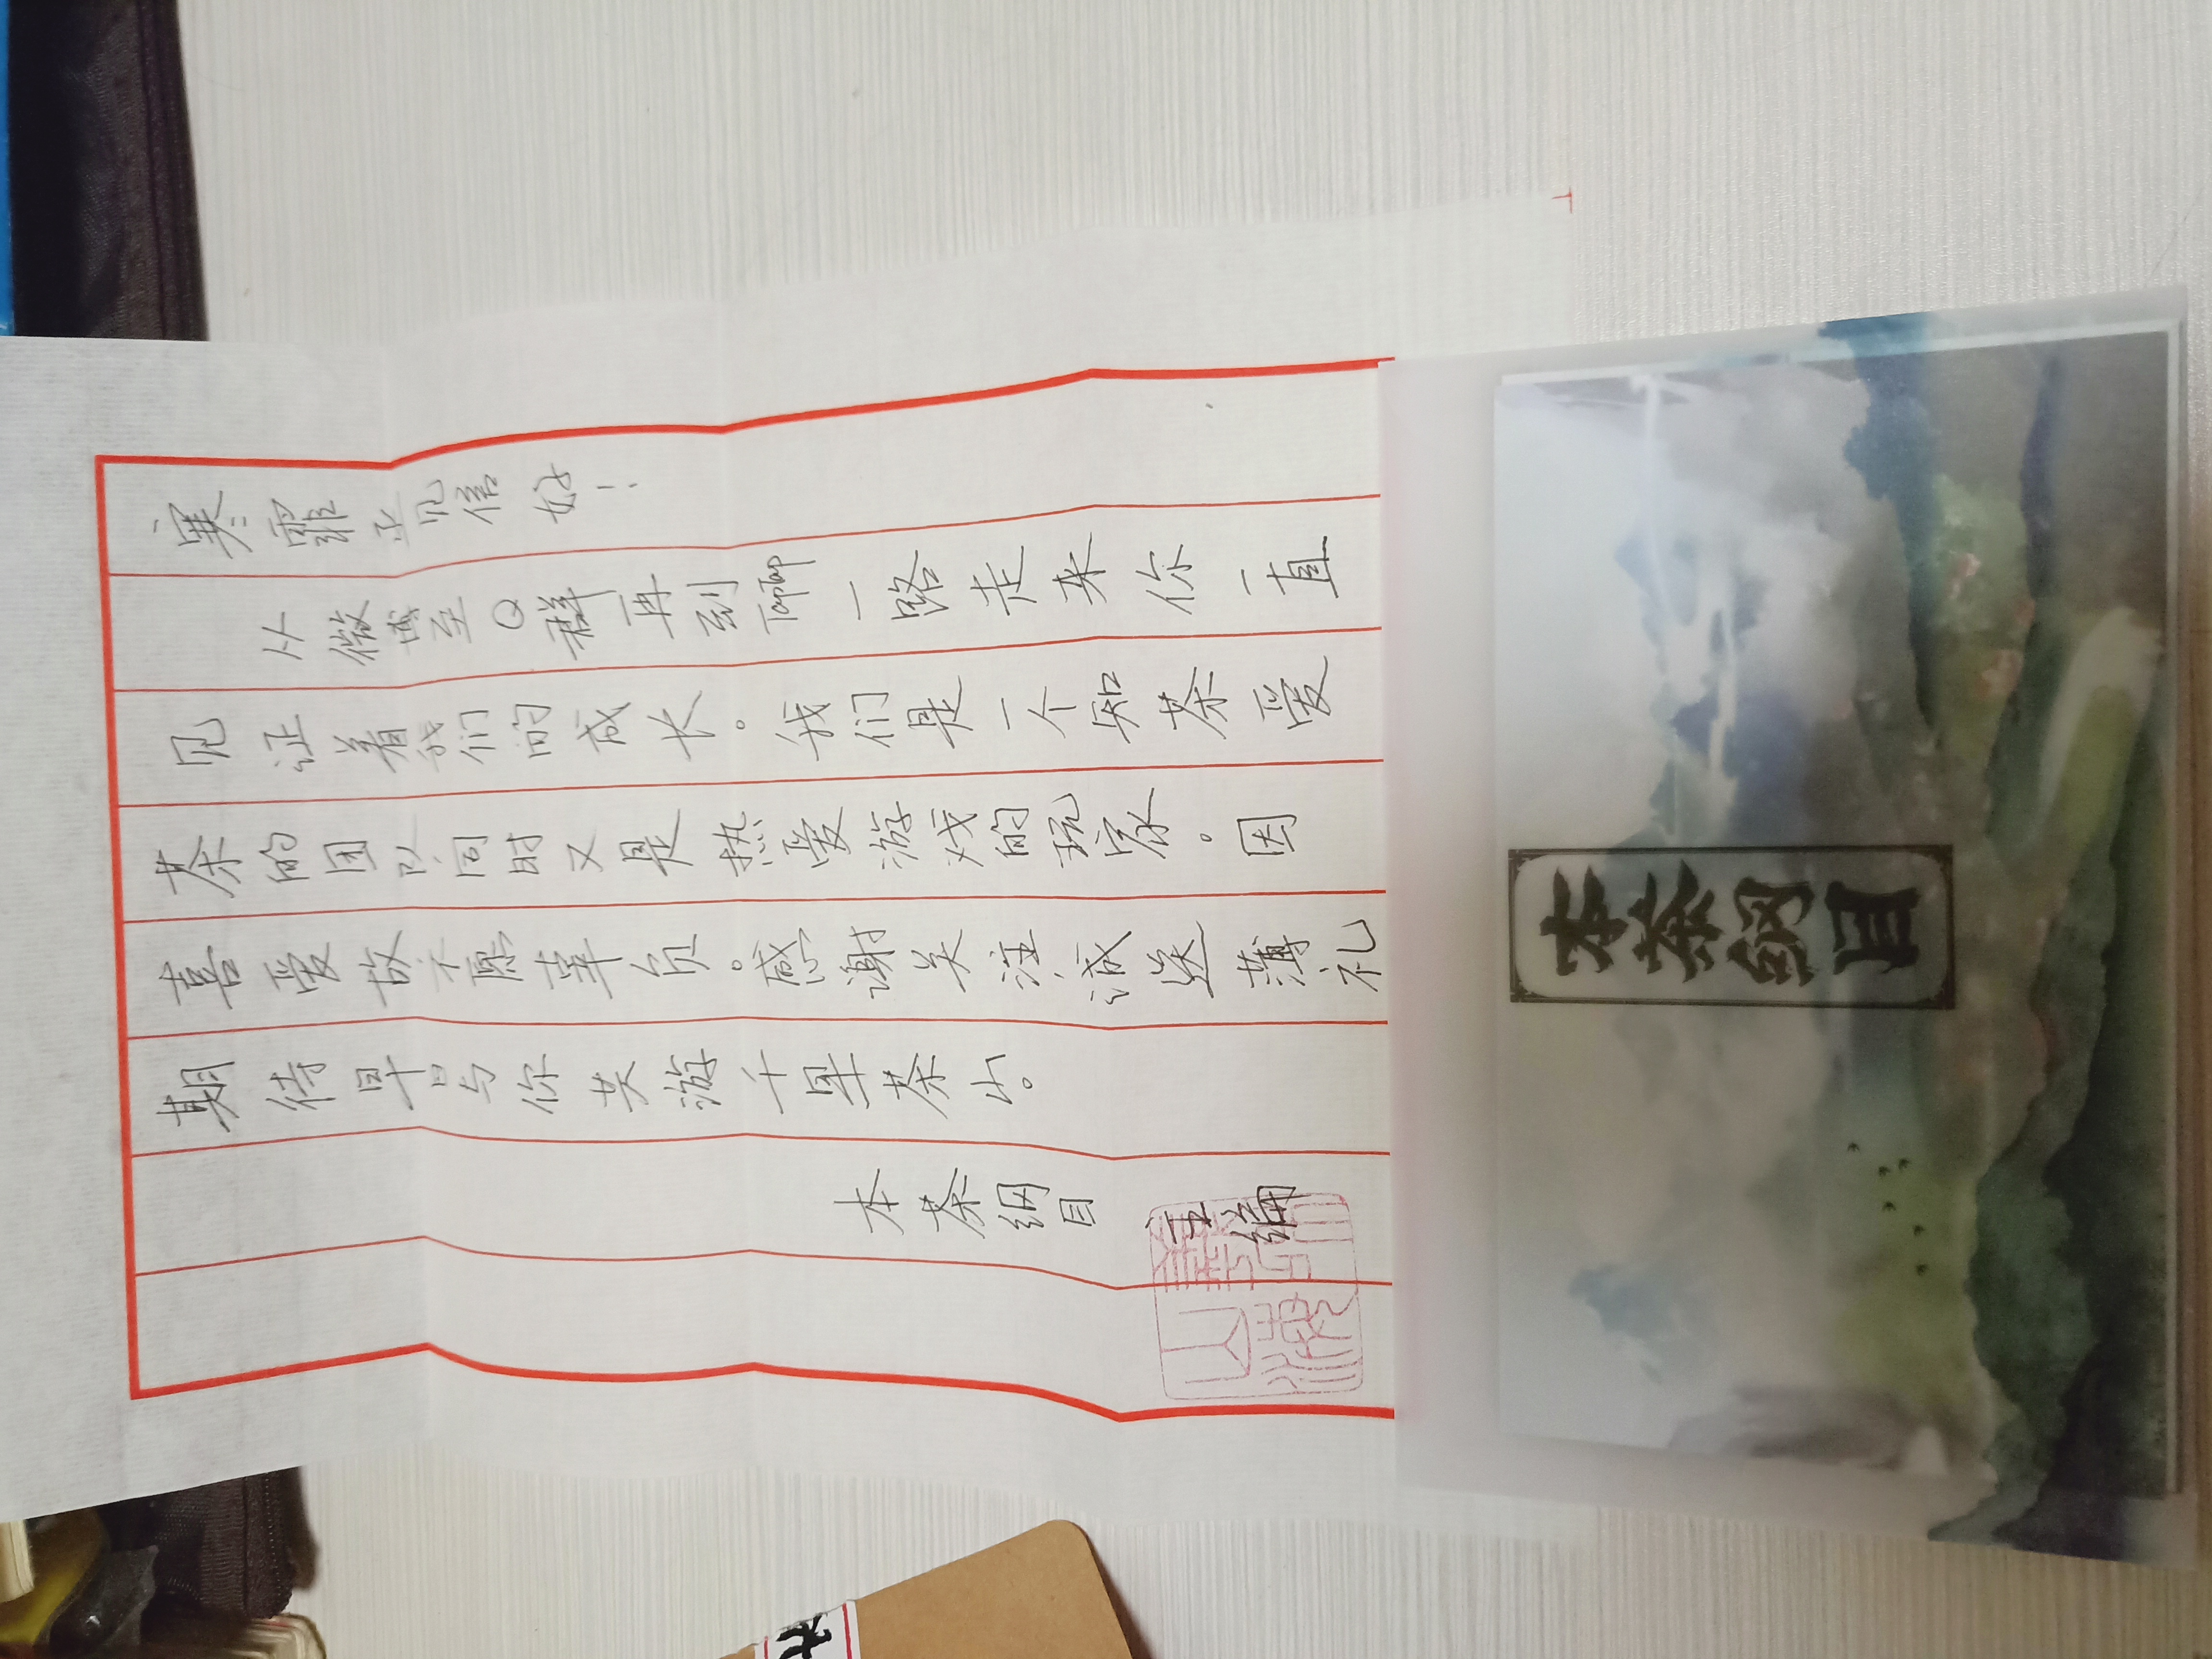 寒霏 见信好！
从微博至Q群再到唧一路走来你一直
见证着我们的成长。我们是一个知茶爱
茶的团队同时又是热爱游戏的玩家。因
喜爱故不愿辜负。感谢关注，诚送薄礼
期待早日与你共游千里茶山。
本茶纲目
主编
本茶纲目